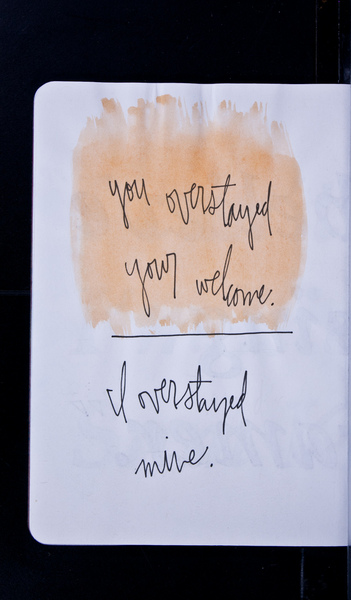 you overstayed
your welcome.
I overstayed
mine.